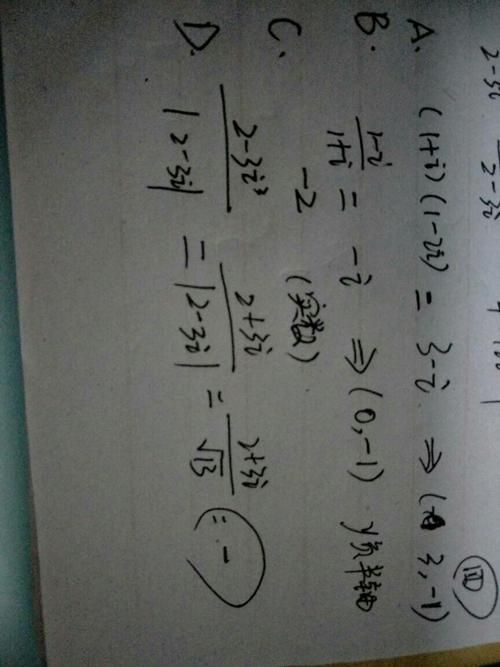 2-3i
2-3i
A. (1+i)(1-2i) = 3-i ⇒ (3,-1) 四
B. \frac{1-i}{1+i} = -i ⇒ (0,-1) y负半轴
C. -2 (实数)
D. \frac{2-3i³}{|2-3i|} = \frac{2+3i}{|2-3i|} = \frac{2+3i}{√13} = -